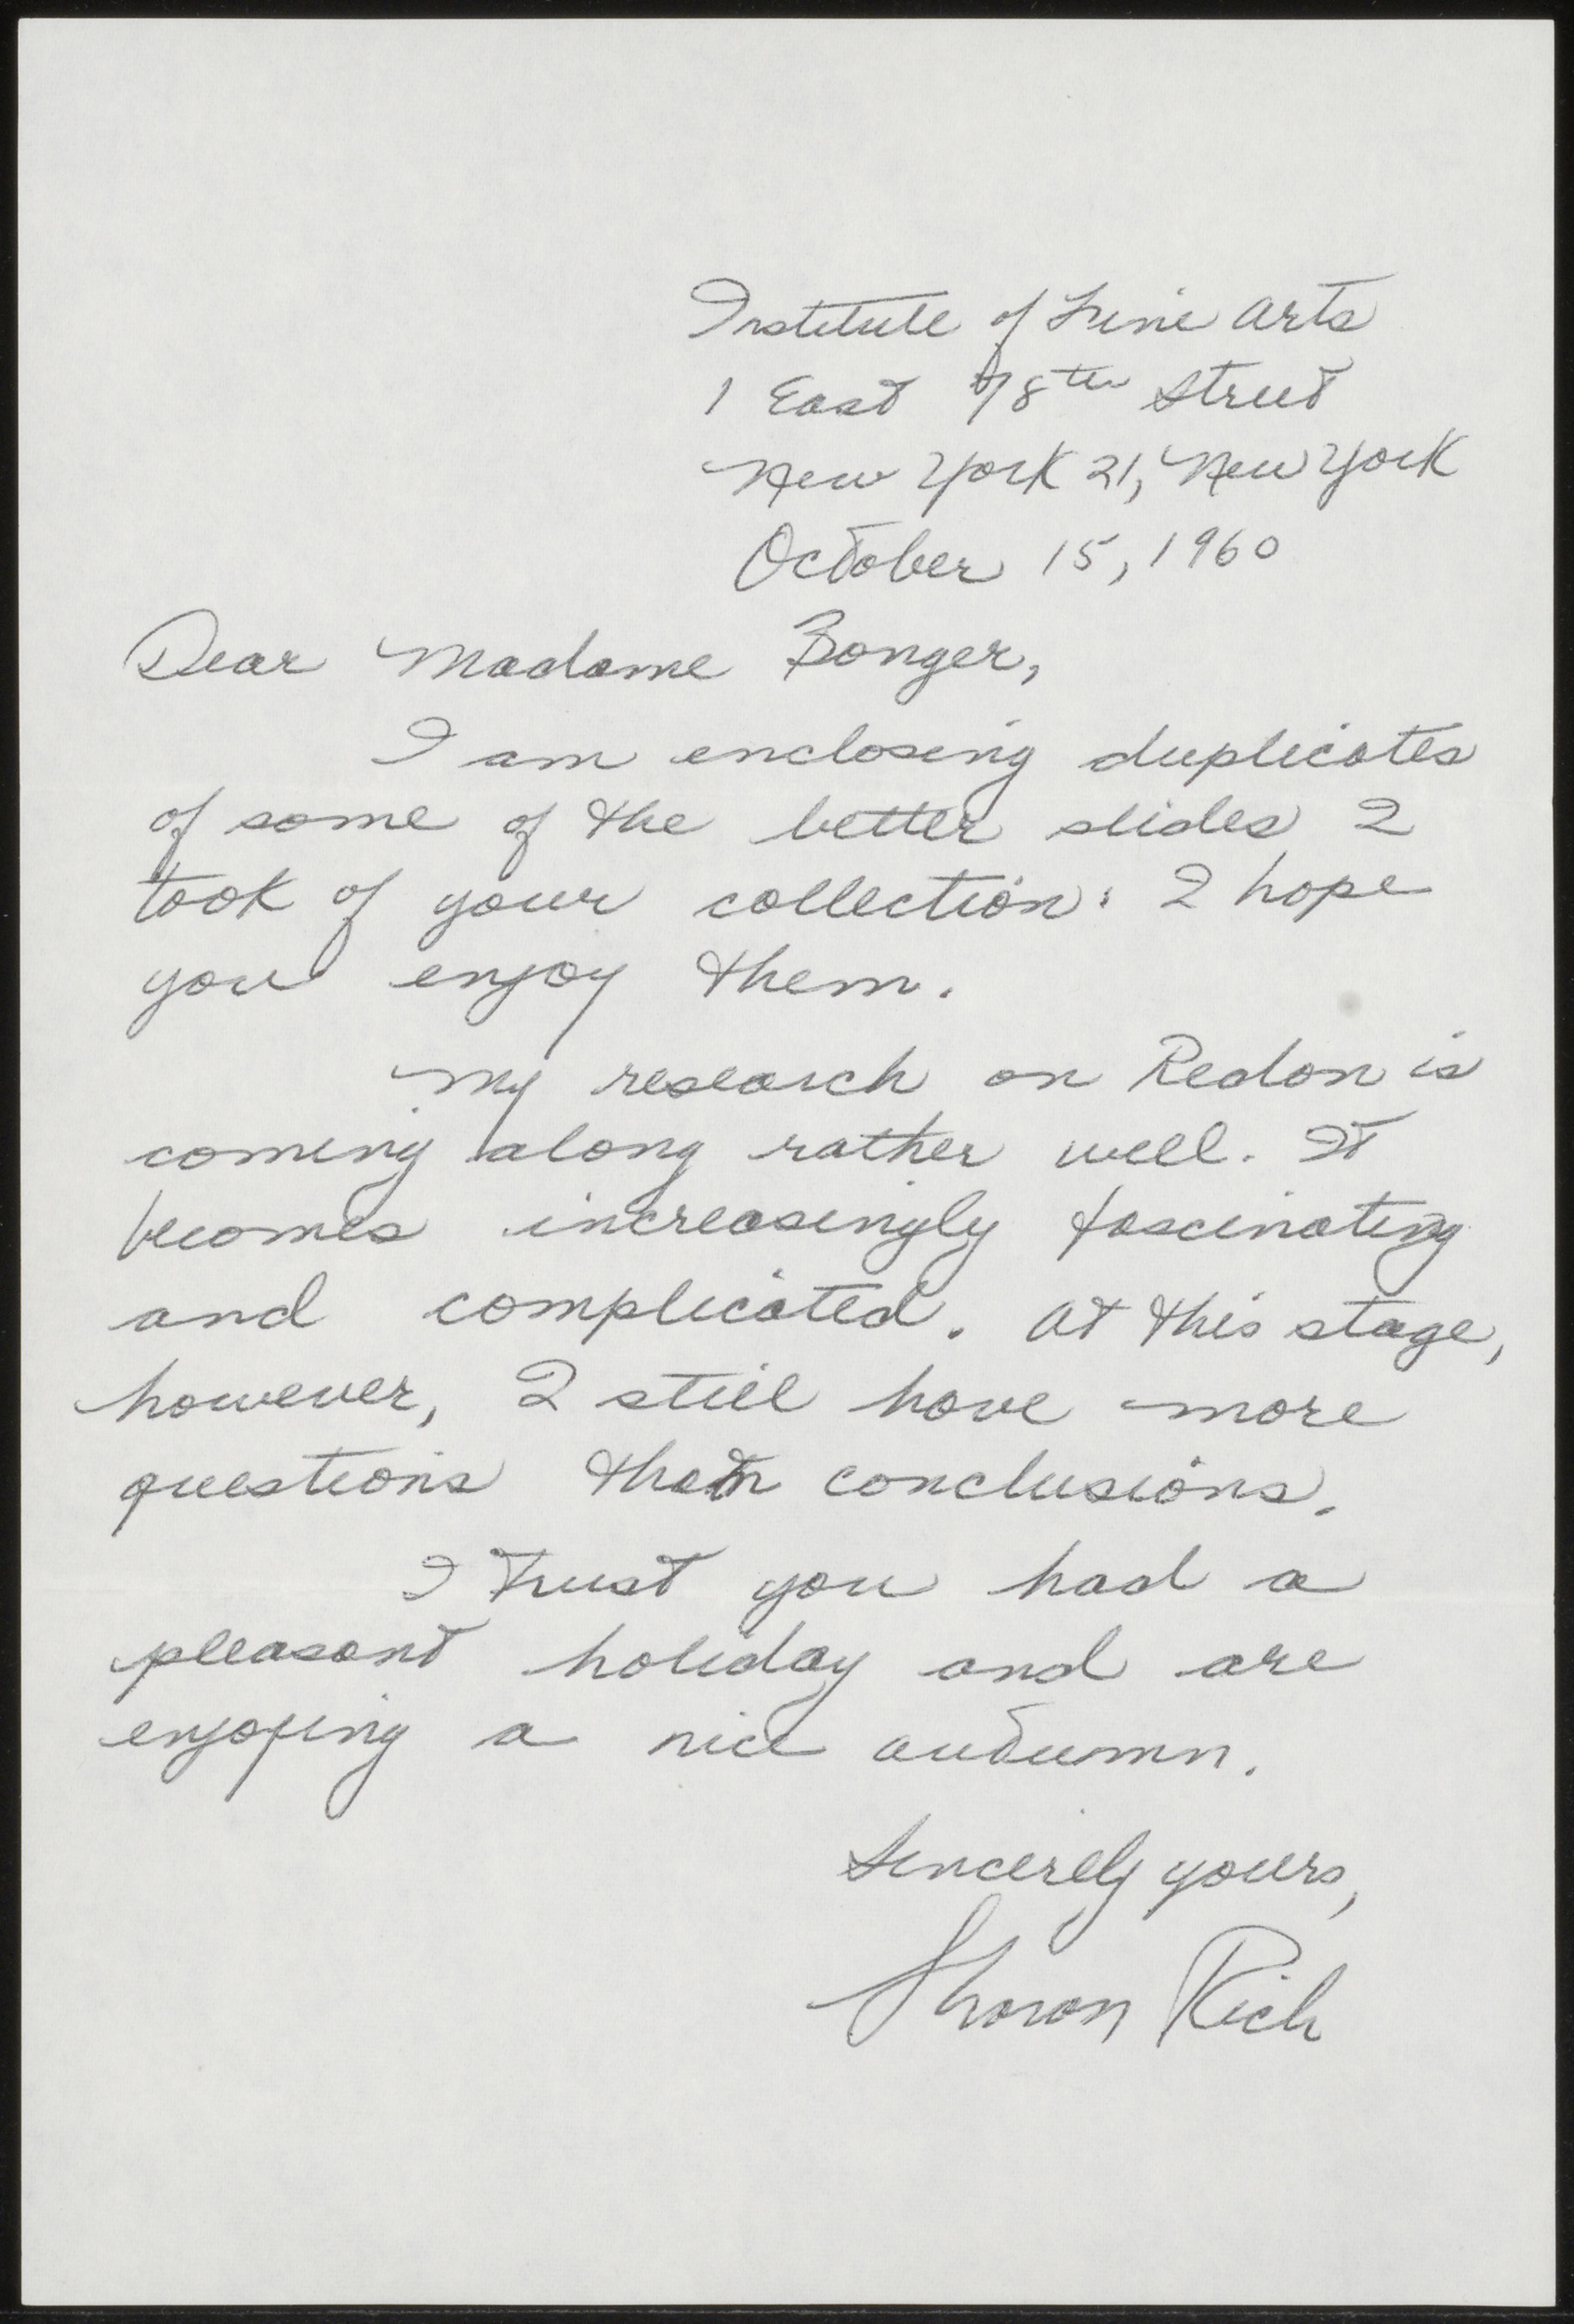 Institute of Fine Arts
1 East 78th Street
New York 21, New York
October 15, 1960
Dear Madame Bonger,
I am enclosing duplicates
of some of the better slides I
took of your collection. I hope
you enjoy them.
My research on Redon is
coming along rather well. It
becomes increasingly fascinating
and complicated. At this stage,
however, I still have more
questions than conclusions.
I trust you had a
pleasant holiday and are
enjoying a nice autumn.
Sincerely yours,
Sharon Rich